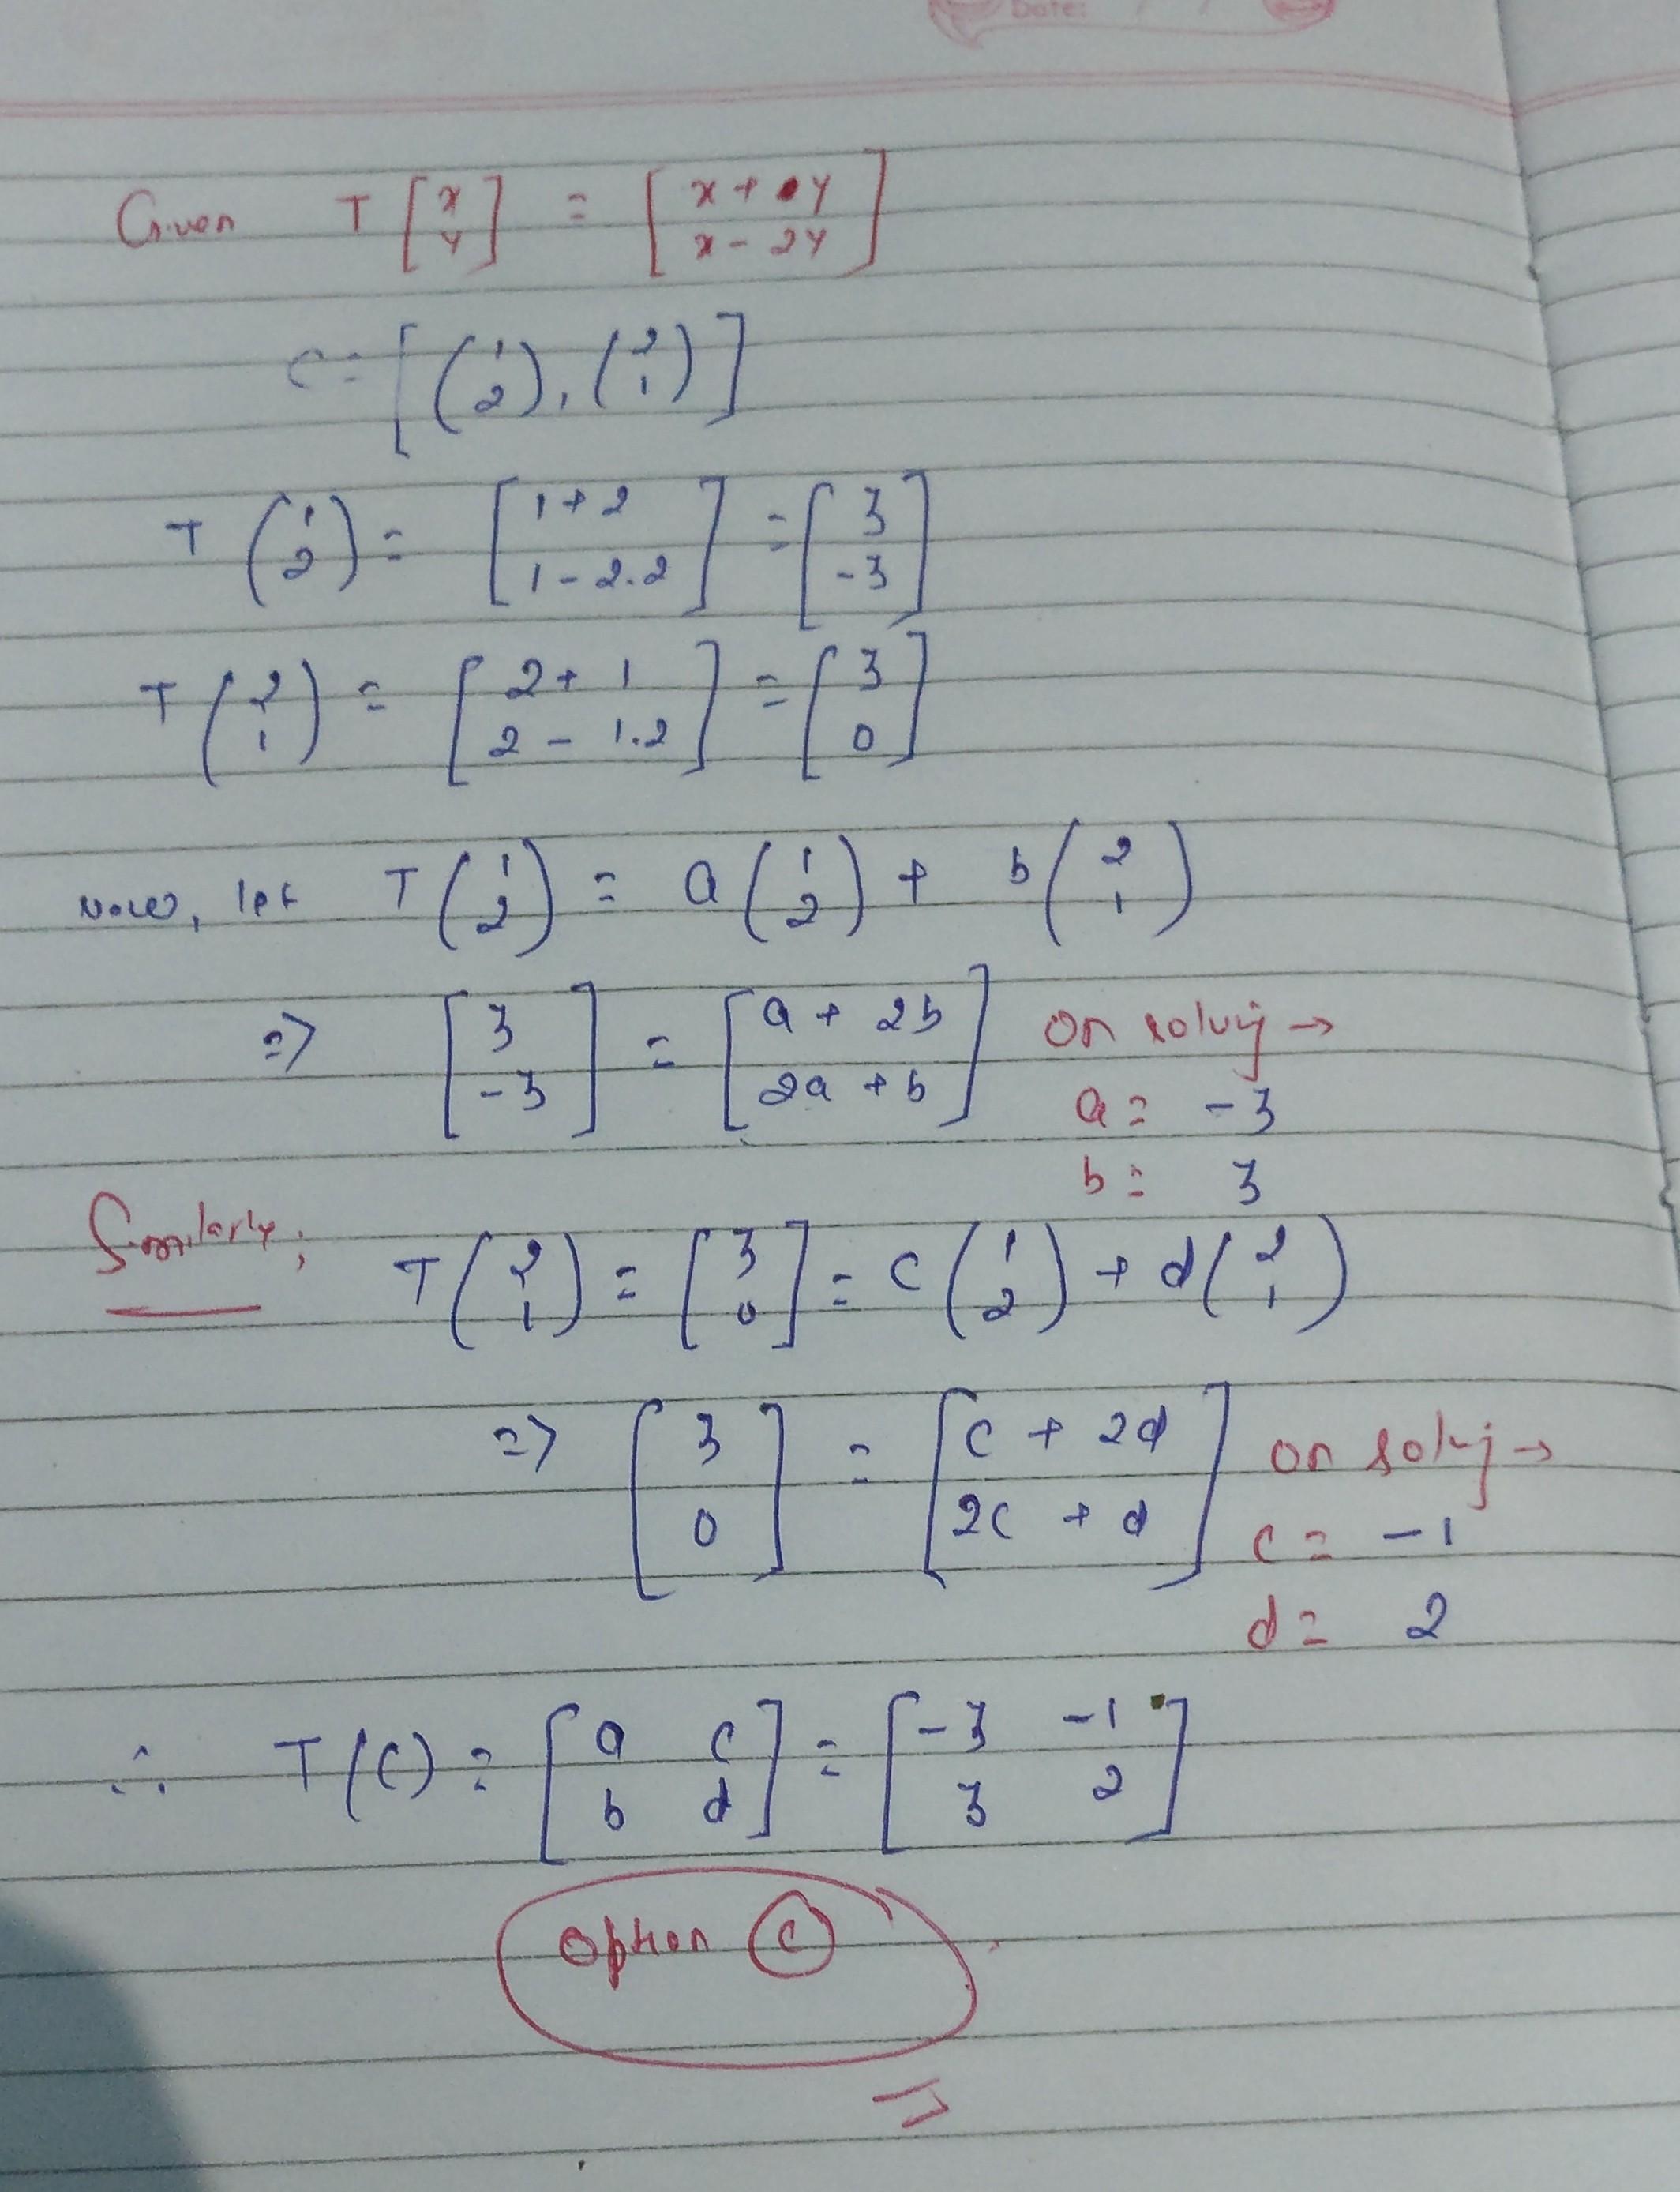 Date: / /
Given T [x y] = [x + y x - 2y]
C = [(1 2), (2 1)]
T (1 2) = [1 + 2 1 - 2.2] = [3 -3]
T (2 1) = [2 + 1 2 - 1.2] = [3 0]
Now, let T (1 2) = a (1 2) + b (2 1)
=> [3 -3] = [a + 2b 2a + b] on solvig →
a = -3
b = 3
Similarly; T (2 1) = [3 0] = c (1 2) + d (2 1)
=> [3 0] = [c + 2d 2c + d] on solvj →
c = -1
d = 2
∴ T(C) = [a c b d] = [-3 -1 3 2]
Option (c)